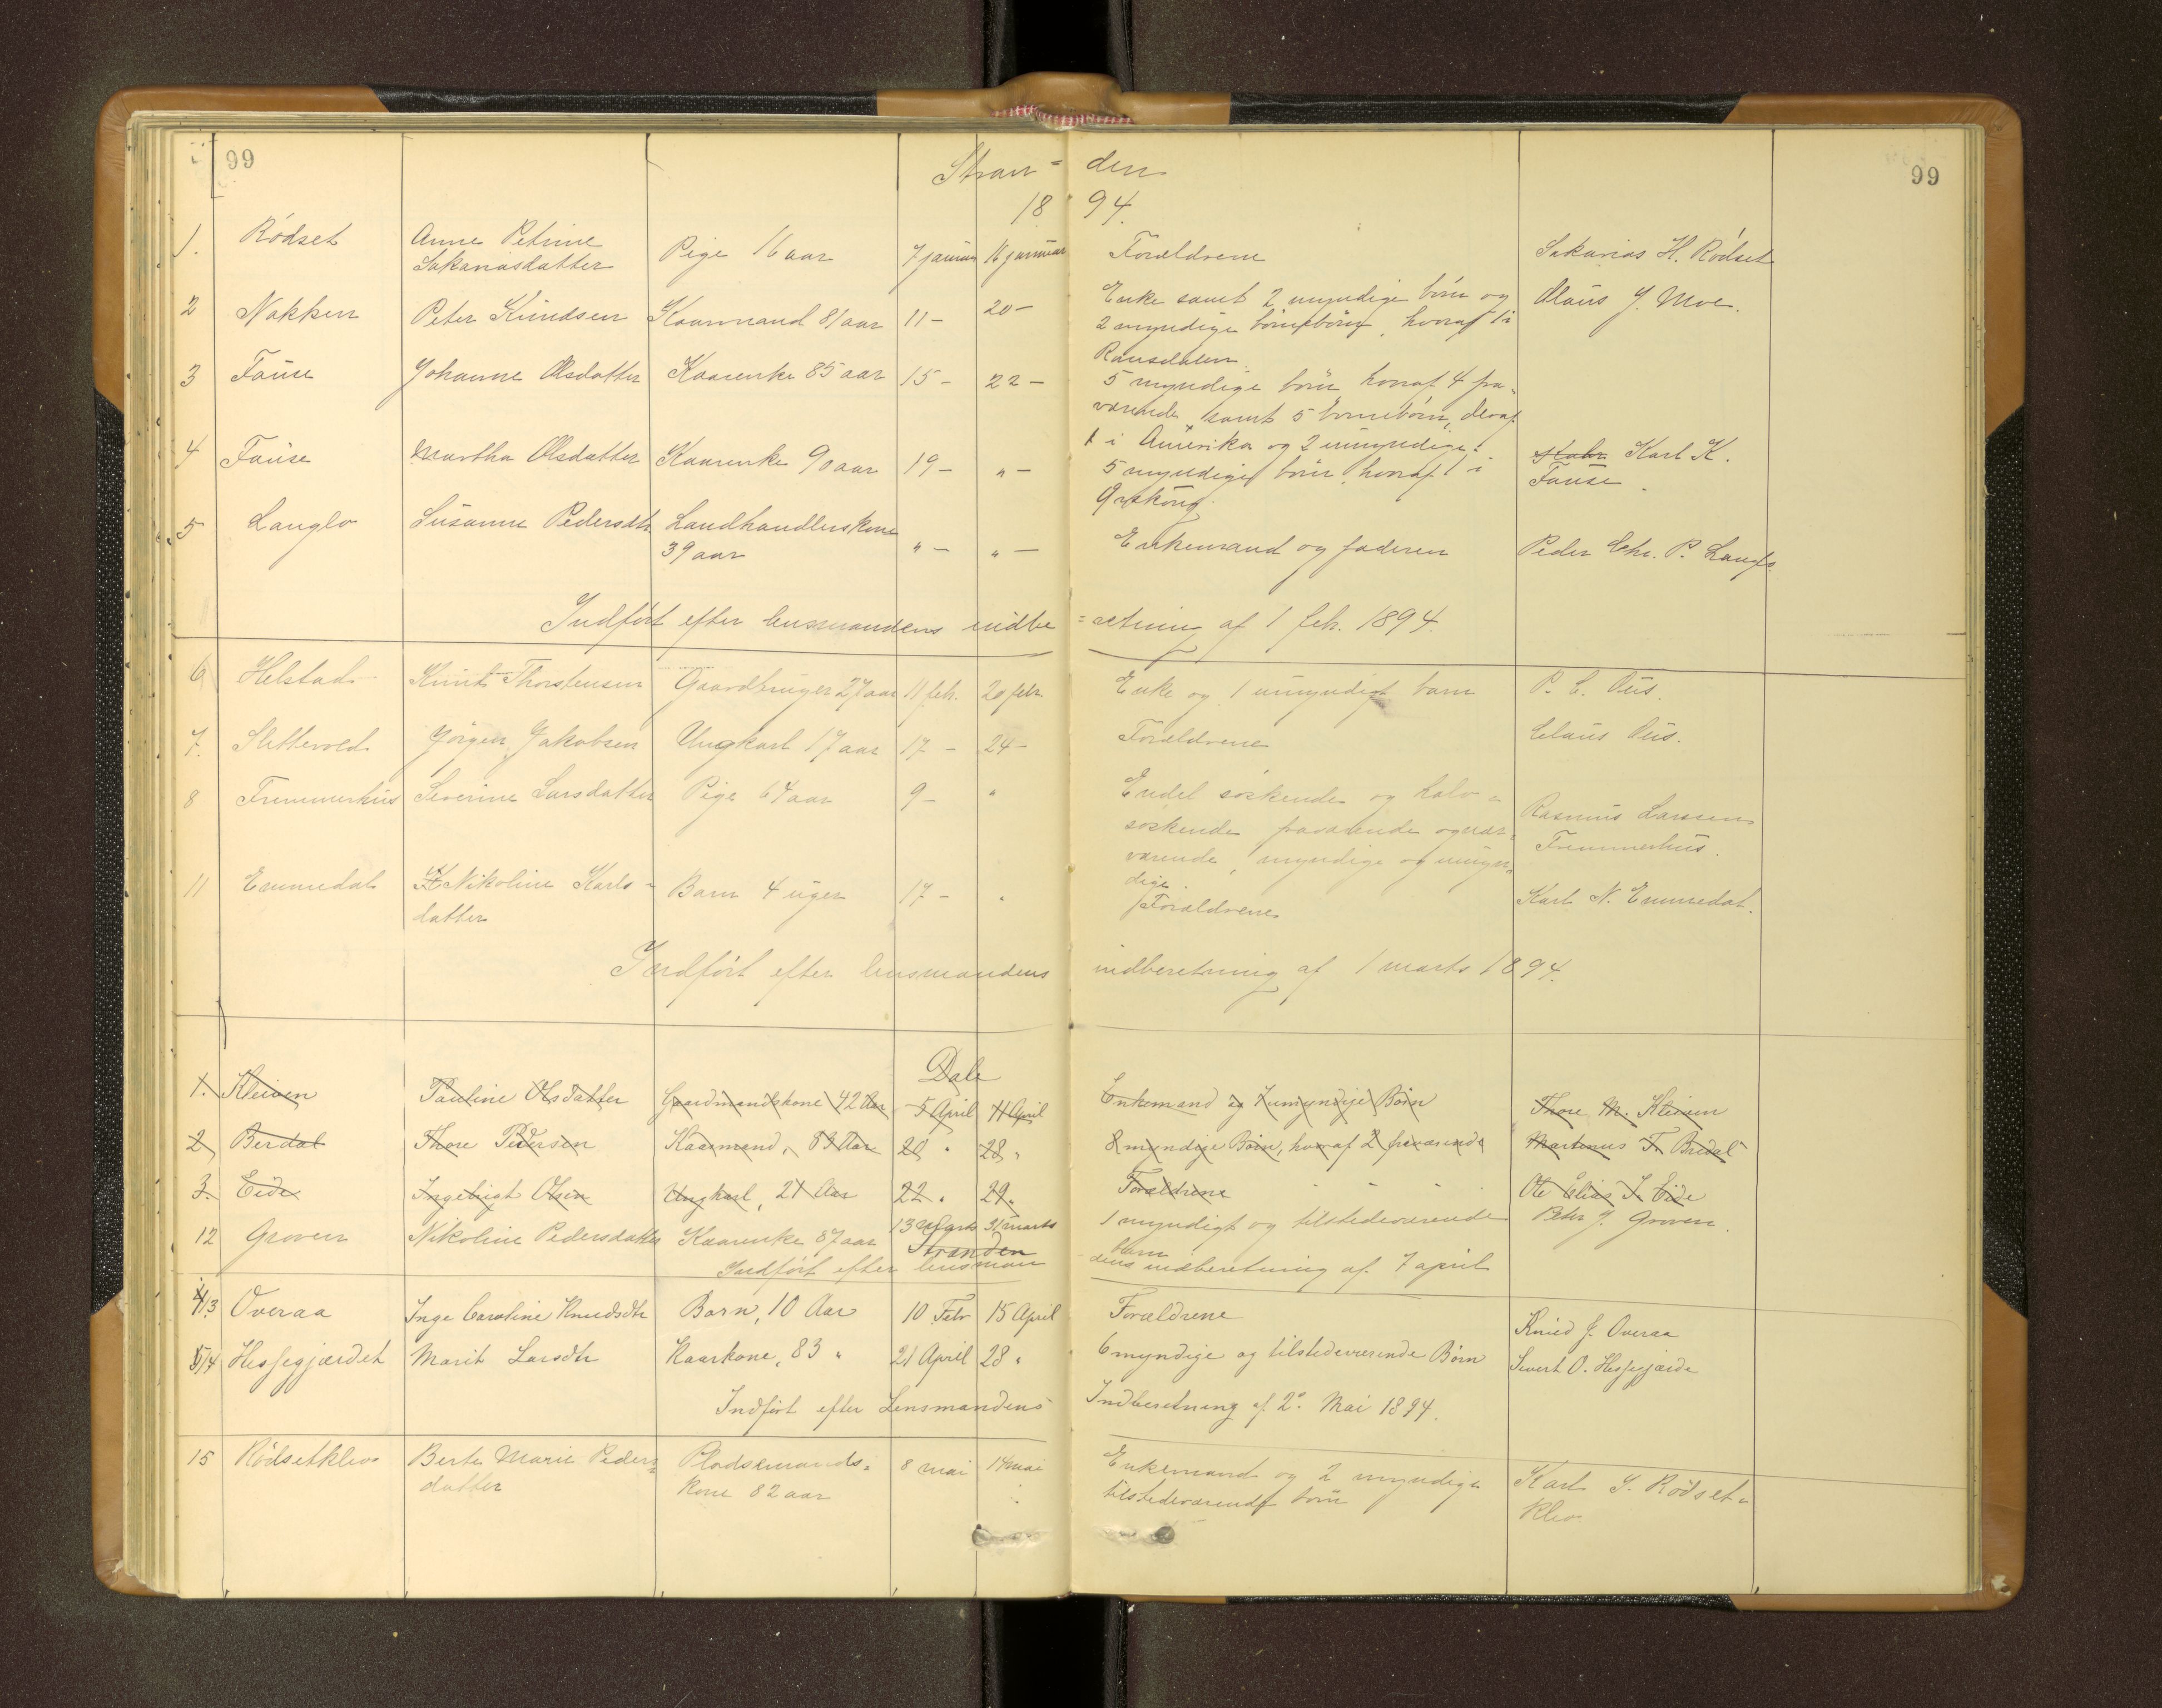 99
99
Stran= den
18 94.
1. Rödset Anne Petrine Pige 16 aar 7 januar 16 januar Forældrene Sakarias H. Rödset
Sakariasdatter
2 Nakken Peter Knudsen Kaarmand 81 aar 11 - 20 - Enke samt 2 myndige börn og Claus J. Moe.
2 myndige börnebörn, hvoraf 1 i
Romsdalen
3 Fause Johanne Olsdatter Kaarenke 85 aar 15 - 22 - 5 myndige börn hvoraf 4 fra-
værende samt 5 börnebörn, deraf
1 i Amerika og 2 umyndige.
4 Fause Martha Olsdatter Kaarenke 90 aar 19 - " - 5 myndige börn, hvoraf 1 i Karl K.
Fause
5 Langlo Susanne Pedersdtr Landhandlerskone " - " - Enkemand og faderen Peder Chr. P. Langlo
39 aar
Indfört efter lensmandens indbe =retning af 1 feb. 1894.
6 Helstad Knut Thorstensen Gaardbruger 27 aar 11 feb. 20 febr Enke og 1 umyndigt barn P. C. Öus.
7. Slettevold Jörgen Jakobsen Ungkarl 17 aar 17 - 24 - Forældrene Claus Öus.
8 Fremmerhus Severine Larsdatter Pige 64 aar 9 - " Endel söskende og halv= Rasmus Larsen
söskende fraværende og nær= Fremmerhus.
værende, myndige og umyn=
dige.
11 Emmedal Nikoline Karls= Barn 4 uger 17 - " Forældrene Karl N. Emmedal.
datter
Indfört efter lensmandens indberetning af 1 marts 1894.
Dale
1. Kleiven Pauline Olsdatter Gaardmandskone 42 Aar 5 April 11 April Enkemand og umyndige Börn Thore M. Kleiven
2, Berdal Thore Pedersen Kaarmand, 83 Aar 20 " 28 " 8 myndige Börn, hvoraf 2 fraværende Martinus T. Bredal
3. Eide Ingebrigt Olsen Ungkarl, 21 Aar 22 " 29 " Forældrene Ole Elias I. Eide
12 Groven Nikoline Pedersdatter Kaarenke 87 aar 13 Marts 31 marts 1 myndigt og tilstedeværende Peter J. Groven.
barn
Stranden
Indfört efter lensman =dens indberetning af 7 april
13 Overaa Inge Caroline Knudsdtr Barn, 10 Aar 10 Febr 15 April Forældrene Knud J. Overaa
14 Hessegjærdet Marit Larsdtr Kaarkone, 83 " 21 April 28 " 6 myndige og tilstedeværende Börn Sivert O. Hessegjærde
Indfört efter Lensmandens Indberetning af 2. Mai 1894.
15 Rödsetklev Berte Marie Peders= Pladsemands= 8 mai 14 mai Enkemand og 2 myndige Karl S. Rödset=
datter kone 82 aar tilstedeværende börn klev